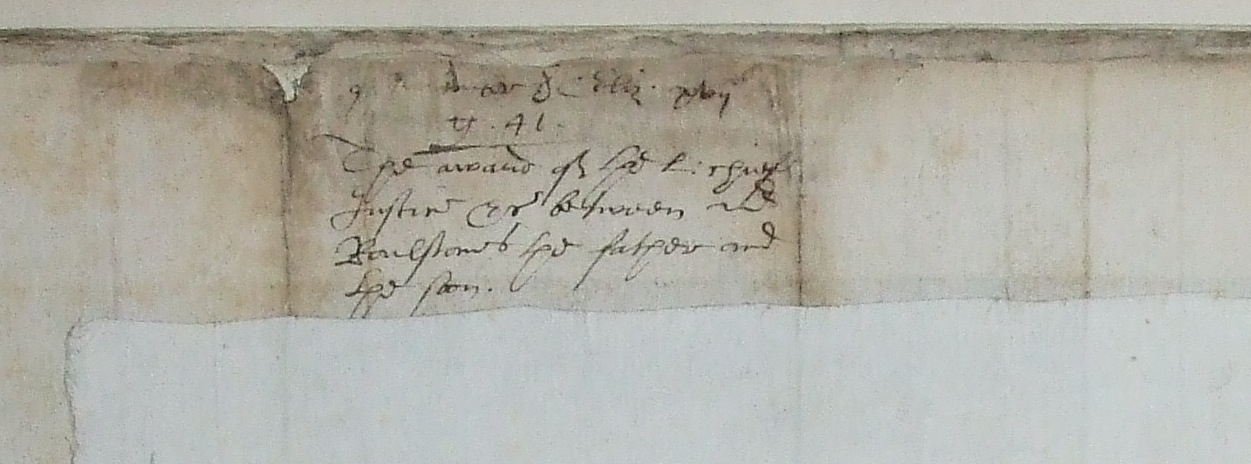 Eliz. xvij
41.
The award of the L. chief
Justice &c between
Roulstones the father and
the son.